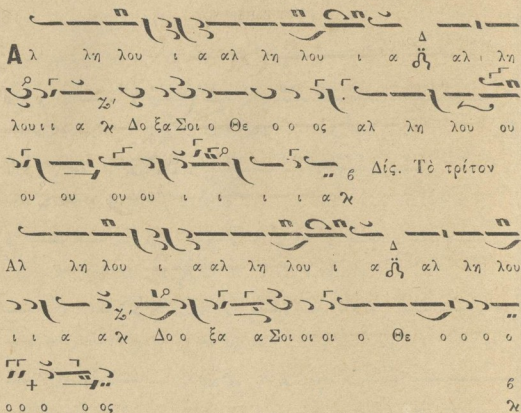 Αλ λη λου ι α αλ λη λου ι α Δ αλ λη
λου ι ι α Δο ξα Σοι ο Θε ο ο ος αλ λη λου ου
ου ου ου ου ι ι ι ι α Δίς. Τὸ τρίτον
Αλ λη λου ι α αλ λη λου ι α Δ αλ λη λου
ι ι α α Δο ο ξα α Σοι οι οι ο Θε ο ο ο ο
ο ο ο ο ος